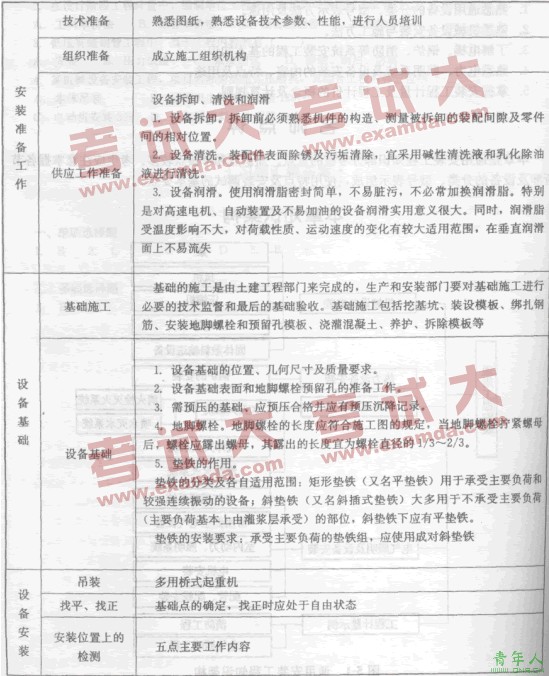 技术准备
熟悉图纸，熟悉设备技术参数、性能，进行人员培训
组织准备
成立施工组织机构
安装准备工作
供应工作准备
设备拆卸、清洗和润滑
1. 设备拆卸。拆卸前必须熟悉机件的构造、测量被拆卸的装配间隙及零件
间的相对位置。
2. 设备清洗。装配件表面除锈及污垢清除，宜采用碱性清洗液和乳化除油
液进行清洗。
3. 设备润滑。使用润滑脂密封简单，不易脏污，不必常加换润滑脂。特别
是对高速电机、自动装置及不易加油的设备润滑实用意义很大。同时，润滑脂
受温度影响不大，对荷载性质、运动速度的变化有较大适用范围，在垂直润滑
面上不易流失
设备基础
基础施工
基础的施工是由土建工程部门来完成的，生产和安装部门要对基础施工进行
必要的技术监督和最后的基础验收。基础施工包括挖基坑、装设模板、绑扎钢
筋、安装地脚螺栓和预留孔模板、浇灌混凝土、养护、拆除模板等
设备基础
1. 设备基础的位置、几何尺寸及质量要求。
2. 设备基础表面和地脚螺栓预留孔的准备工作。
3. 需预压的基础，应预压合格并应有预压沉降记录。
4. 地脚螺栓。地脚螺栓的长度应符合施工图的规定，当地脚螺栓拧紧螺母
后，螺栓应露出螺母，其露出的长度宜为螺栓直径的1/3～2/3。
5. 垫铁的作用。
垫铁的分类及各自适用范围：矩形垫铁（又名平垫铁）用于承受主要负荷和
较强连续振动的设备；斜垫铁（又名斜插式垫铁）大多用于不承受主要负荷
（主要负荷基本上由灌浆层承受）的部位，斜垫铁下应有平垫铁。
垫铁的安装要求：承受主要负荷的垫铁组，应使用成对斜垫铁
设备安装
吊装
多用桥式起重机
找平、找正
基础点的确定，找正时应处于自由状态
安装位置上的
检测
五点主要工作内容
考试大
考试大
www.examda.com
www.examda.com
考试大
考试大
www.examda.com
www.examda.com
青年人
www.qnr.cn